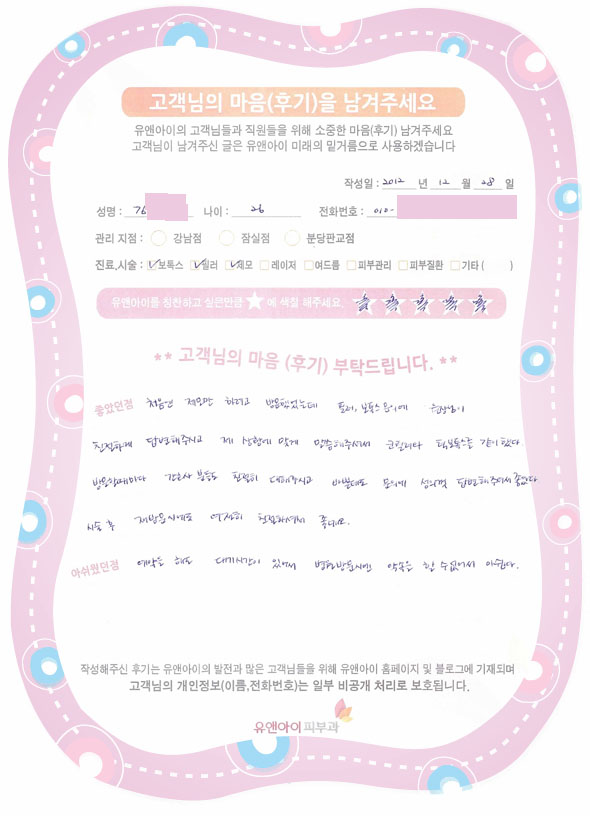 고객님의 마음(후기)을 남겨주세요
유앤아이의 고객님들과 직원들을 위해 소중한 마음(후기) 남겨주세요
고객님이 남겨주신 글은 유앤아이 미래의 밑거름으로 사용하겠습니다
작성일 : 2012 년 12 월 28 일
성명 : 나이 : 26 전화번호 : 010-
관리 지점 : 강남점 잠실점 분당판교점
진료,시술 : 보톡스 필러 제모 레이저 여드름 피부관리 피부질환 기타 ( )
유앤아이를 칭찬하고 싶은만큼 ★에 색칠 해주세요.
** 고객님의 마음 (후기) 부탁드립니다. **
좋았던점 처음엔 제모만 하려고 방문했었는데 필러, 보톡스 문의에 원장님이
친절하게 답변해주시고 제 상황에 맞게 말씀해주셔서 코필러와 턱보톡스를 같이 했다
방문할때마다 간호사 분들도 친절히 대해주시고 바쁠때도 문의에 성의껏 답변해주셔서 좋았다
시술 후 재방문시에도 여전히 친절하셔서 좋네요.
아쉬웠던점 예약을 해도 대기시간이 있어서 병원방문시엔 약속을 할 수 없어서 아쉽다.
작성해주신 후기는 유앤아이의 발전과 많은 고객님들을 위해 유앤아이 홈페이지 및 블로그에 기재되며
고객님의 개인정보(이름,전화번호)는 일부 비공개 처리로 보호됩니다.
유앤아이피부과